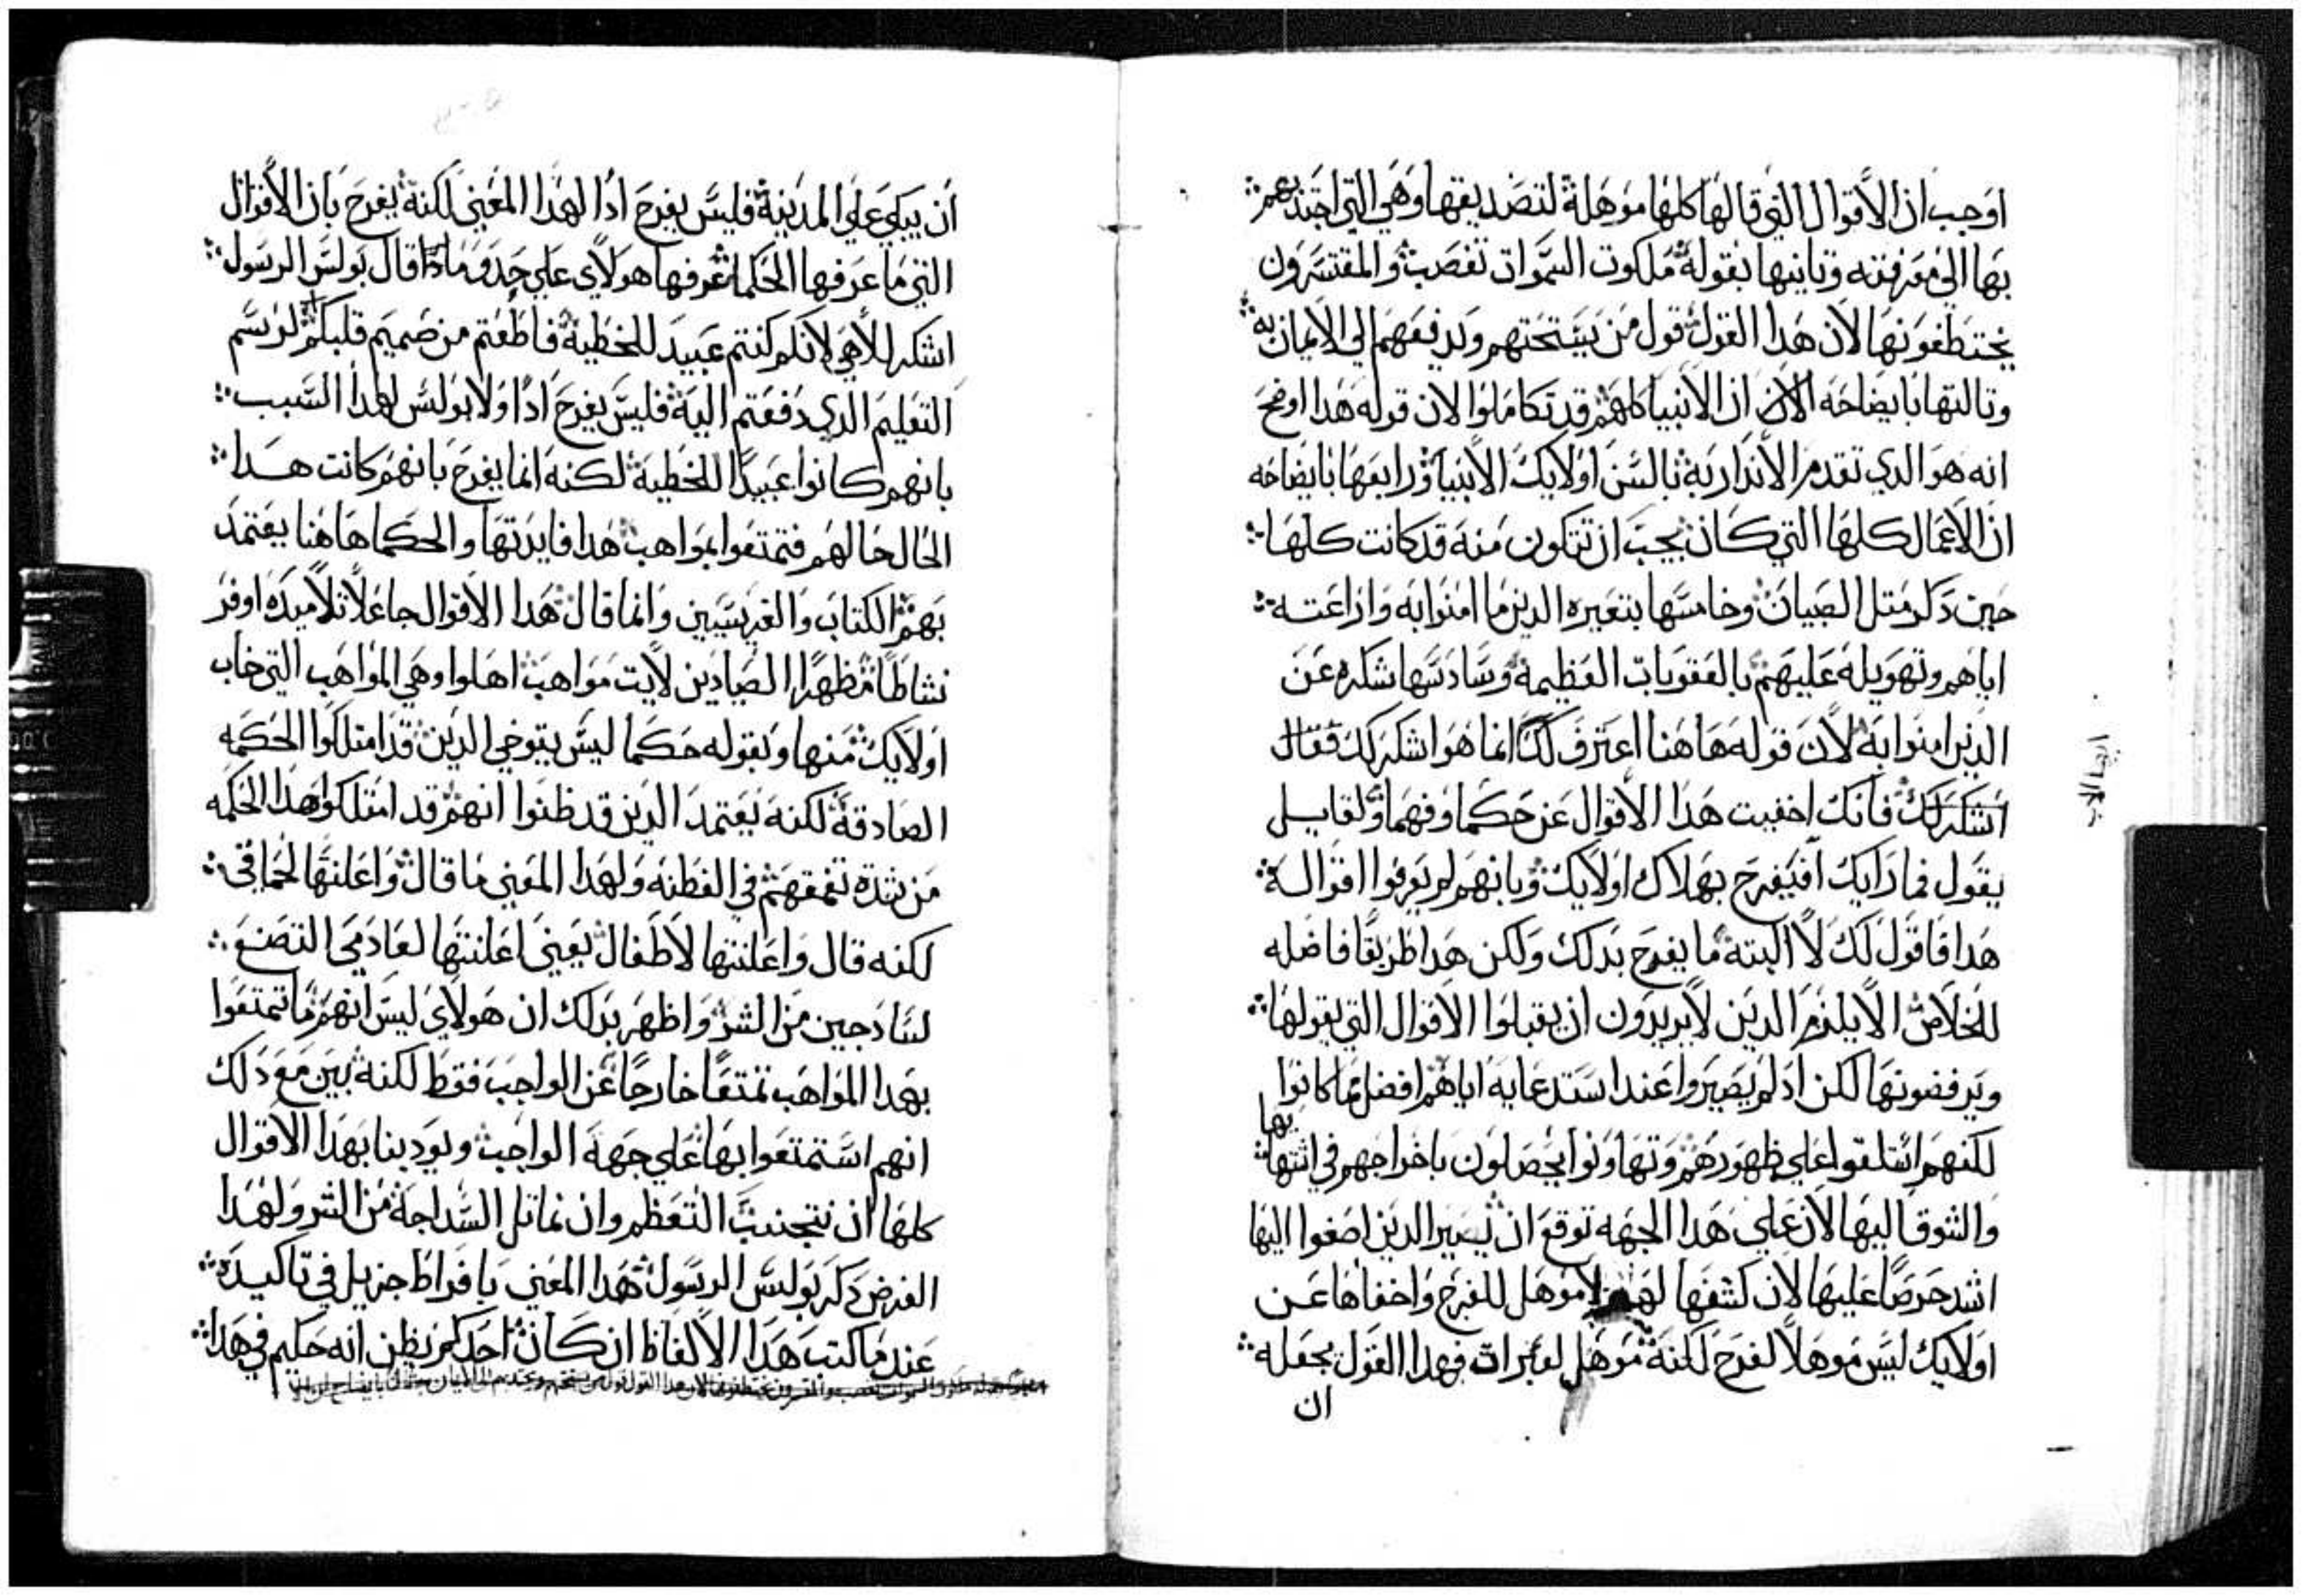 اوجب ان الاقوال التي قالها كلها موهلة لتصديقها وهي التي اجتذبهم
بها الى معرفته وتانيها بقوله ملكوت السموات تغصب والمقتسرون
يختطفونها لان هدا القول قول من يستحتهم ويدفعهم الي الايمان به
وتالتها بايضاحه الان ان الانبيا كلهم قد تكاملوا لان قوله هدا اوضح
انه هو الدي تقدم الاندار به بالسن اولايك الانبيا ورابعها بايضاحه
ان الاعمال كلها التي كان يجب ان تتكون منه قد كانت كلها
حين دكر متل الصبيان وخامسها بتعيره الدين ما امنوا به واراعته
اياهم وتهويله عليهم بالعقوبات العظيمة وسادسها شكره عن
الدين امنوا به لان قوله هاهنا اعترف لك انما هو اشكر لك فقال
اشكر لك فانك اخفيت هدا الاقوال عن حكما وفهما ولقايل
يقول فما رايك افيفرح بهلاك اولايك وبانهم لم يعرفوا اقواله
هدا فاقول لك لا البتة ما يفرح بدلك ولكن هدا طريقا فاضله
للخلاص الا يلزم الدين لا يريدون ان يقبلوا الاقوال التي يقولها
ويرفضونها لكن اد لم يصيروا عند استدعايه اياهم افضل مما كانوا
بها
لكنهم استلقوا علي ظهورهم وتهاونوا يحصلون باخراجهم في اثتها
والشوق اليها لان علي هدا الجهه توقع ان يصير الدين اصغوا اليها
اشد حرصا عليها لان كشفها لهم لاموهل للفرح واخفاها عن
اولايك ليس موهلا لفرح لكنة موهل لعبرات فهدا القول يجعله
ان
ان يبكي علي المدينة فليس يفرح ادا لهدا المعني لكنة يفرح بان الاقوال
التي ما عرفها الحكما عرفها هولاي علي حدو مادا قال بولس الرسول
اشكر للاهي لانكم كنتم عبيد للخطية فاطعتم من صميم قلبكم لرسم
التعليم الدي دفعتم الية فليس يفرح ادا ولا بولس لهدا السبب
بانهم كانوا عبيدا للخطية لكنه انما يفرح بانهم كانت هدا
الحال حالهم فتمتعوا بمواهب هدا فايدتها والحكما هاهنا يعتمد
بهم الكتاب والفريسيين وانما قال هدا الاقوال جاعلا تلاميده اوفر
نشاطا مظهرا الصيادين لايت مواهب اهلوا وهي المواهب التي خاب
اولايك منها وبقوله حكما ليس يتوخي الدين قد امتلكوا الحكمه
الصادقة لكنه يعتمد الدين قد ظنوا انهم قد امتلكوا هدا الحكمه
من شدة تعمقهم في الفطنه ولهدا المعني ما قال واعلنتها لحماقي
لكنه قال واعلنتها لاطفال يعني اعلنتها لعادمي التصنع
لسادجين من الشر واظهر بدلك ان هولاي ليس انهم ما تمتعوا
بهدا المواهب تمتعا خارجا عن الواجب فقط لكنه بين مع دلك
انهم استمتعوا بها علي جهة الواجب ويودبنا بهدا الاقوال
كلها ان نتجنب التعظم وان نماتل السداجة من الشر ولهدا
الغرض دكر بولس الرسول هدا المعني بافراط جزيل في تاكيده
عند ما كتب هدا الالفاظ ان كان احدكم يظن انه حكيم في هدا